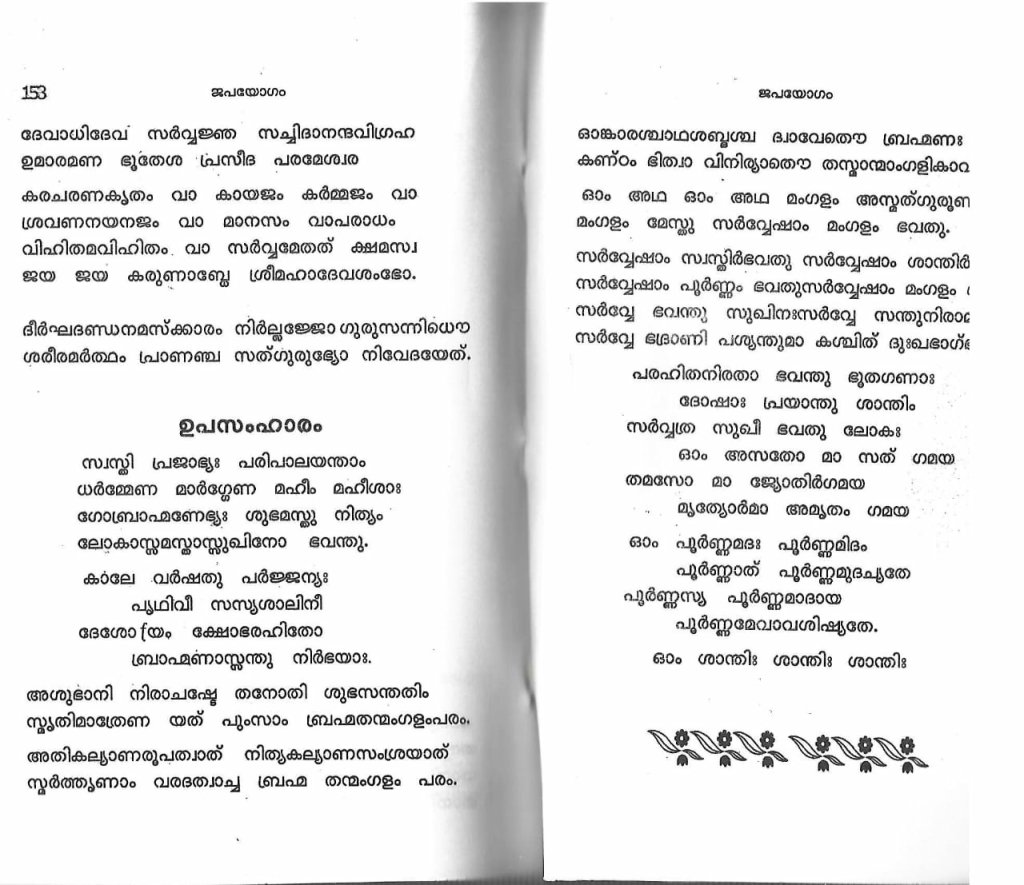 153
ജപയോഗം
ദേവാധിദേവ സർവ്വജ്ഞ സച്ചിദാനന്ദവിഗ്രഹ
ഉമാരമണ ഭൂതേശ പ്രസീദ പരമേശ്വര
കരചരണകൃതം വാ കായജം കർമ്മജം വാ
ശ്രവണനയനജം വാ മാനസം വാപരാധം
വിഹിതമവിഹിതം വാ സർവ്വമേതത് ക്ഷമസ്വ
ജയ ജയ കരുണാബ്ധേ ശ്രീമഹാദേവശംഭോ.
ദീർഘദണ്ഡനമസ്ക്കാരം നിർല്ലജ്ജോ ഗുരുസന്നിധൌ
ശരീരമർത്ഥം പ്രാണഞ്ച സത്ഗുരുഭ്യോ നിവേദയേത്.
ഉപസംഹാരം
സ്വസ്തി പ്രജാഭ്യഃ പരിപാലയന്താം
ധർമ്മേണ മാർഗ്ഗേണ മഹീം മഹീശാഃ
ഗോബ്രാഹ്മണേഭ്യഃ ശുഭമസ്തു നിത്യം
ലോകാസ്സമസ്താസ്സുഖിനോ ഭവന്തു.
കാലേ വർഷതു പർജ്ജന്യഃ
പൃഥിവീ സസ്യശാലിനീ
ദേശോ ƒയം ക്ഷോഭരഹിതോ
ബ്രാഹ്മണാസ്സന്തു നിർഭയാഃ.
അശുഭാനി നിരാചഷ്ടേ തനോതി ശുഭസന്തതിം
സ്മൃതിമാത്രേണ യത് പുംസാം ബ്രഹ്മതന്മംഗളംപരം.
അതികല്യാണരൂപത്വാത് നിത്യകല്യാണസംശ്രയാത്
സ്മർത്തൄണാം വരദത്വാച്ച ബ്രഹ്മ തന്മംഗളം പരം.
ജപയോഗം
ഓങ്കാരശ്ചാഥശബ്ദശ്ച ദ്വാവേതൌ ബ്രഹ്മണഃ
കണ്ഠം ഭിത്വാ വിനിര്യാതൌ തസ്മാന്മാംഗളികാവ
ഓം അഥ ഓം അഥ മംഗളം അസ്മത്ഗുരൂണ
മംഗളം മേസ്തു സർവ്വേഷാം മംഗളം ഭവതു.
സർവ്വേഷാം സ്വസ്തിർഭവതു സർവ്വേഷാം ശാന്തിർ
സർവ്വേഷാം പൂർണ്ണം ഭവതുസർവ്വേഷാം മംഗളം
സർവ്വേ ഭവന്തു സുഖിനഃസർവ്വേ സന്തുനിരാമ
സർവ്വേ ഭദ്രാണി പശ്യന്തുമാ കശ്ചിത് ദുഃഖഭാഗ്ഭ
പരഹിതനിരതാ ഭവന്തു ഭൂതഗണാഃ
ദോഷാഃ പ്രയാന്തു ശാന്തിം
സർവ്വത്ര സുഖീ ഭവതു ലോകഃ
ഓം അസതോ മാ സത് ഗമയ
തമസോ മാ ജ്യോതിർഗമയ
മൃത്യോർമാ അമൃതം ഗമയ
ഓം പൂർണ്ണമദഃ പൂർണ്ണമിദം
പൂർണ്ണാത് പൂർണ്ണമുദച്യതേ
പൂർണ്ണസ്യ പൂർണ്ണമാദായ
പൂർണ്ണമേവാവശിഷ്യതേ.
ഓം ശാന്തിഃ ശാന്തിഃ ശാന്തിഃ